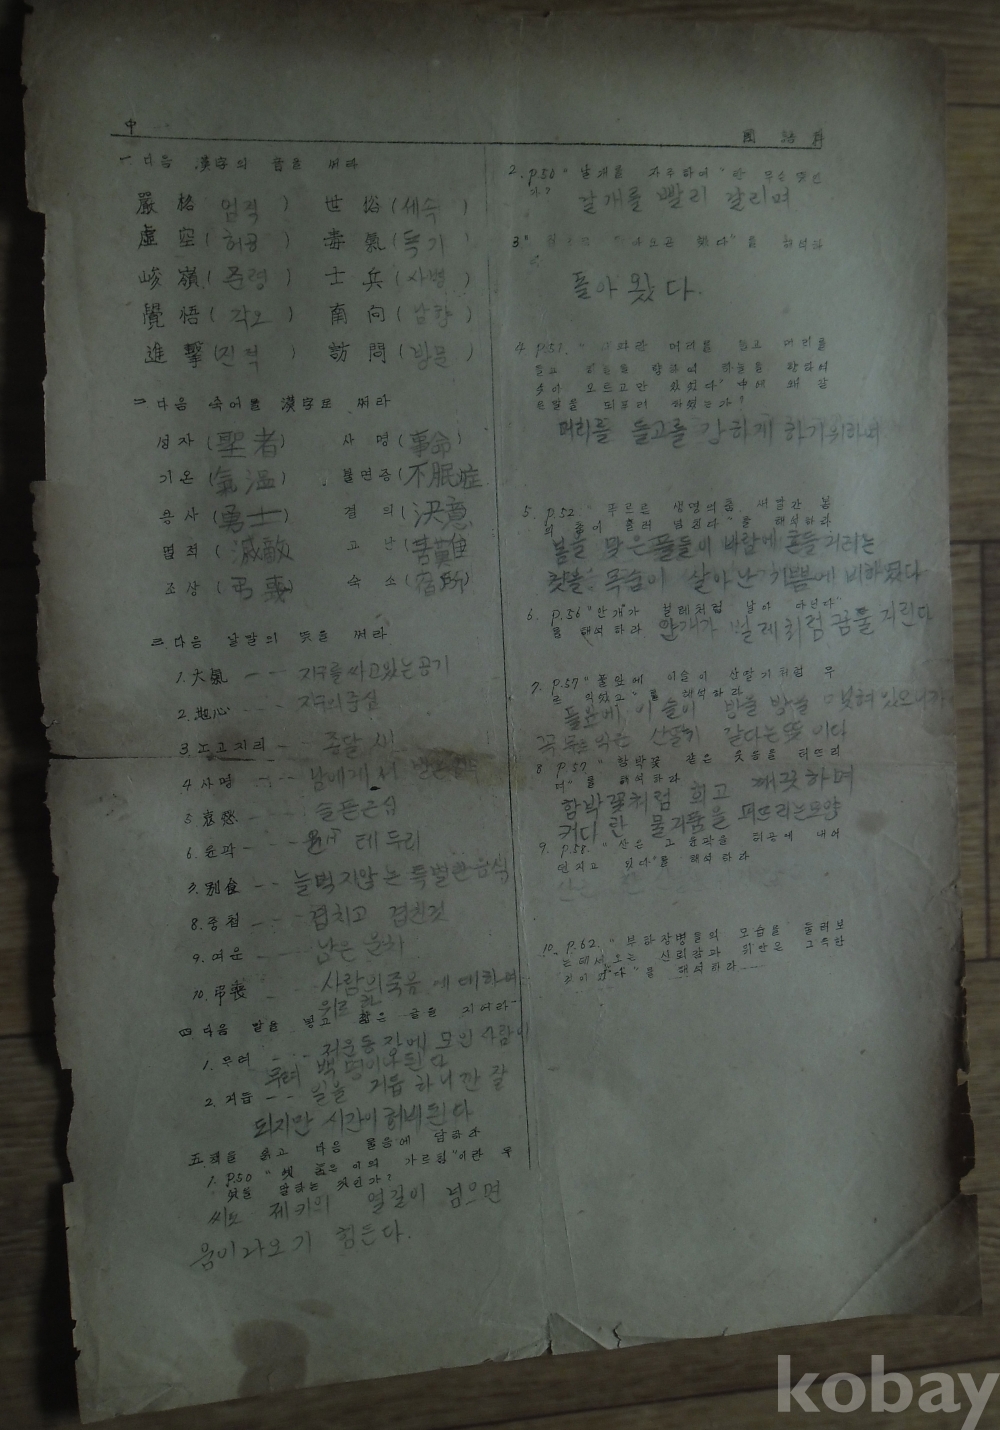 中
國語科
一 다음 漢字의 音을 써라
嚴格 엄격 ) 世俗 (세속 )
虛空 ( 허공 ) 毒氣 ( 독기 )
峻嶺 ( 준령 ) 士兵 (사병 )
覺悟 ( 각오 ) 南向 ( 남향 )
進擊 (진격 ) 訪問 ( 방문 )
二 다음 숙어를 漢字로 써라
성자 (聖者) 사명 (事命)
기온 (氣溫) 불면증 (不眠症
용사 (勇士) 결의 (決意
멸적 (滅敵 고난 (苦難
조상 (弔喪 숙소 (宿所
三 다음 낱말의 뜻을 써라
1. 大氣 --- 지구를 싸고 있는 공기
2. 地心 --- 지구의 중심
3. 노고지리 - 종달새
4 사명 --- 남에게서 받은
5 哀愁 --- 슬픈 근심
6. 윤곽 --- 테두리
3. 別食 -- 늘 먹지 않는 특별한 음식
8. 중첩 --- 겹치고 겹친것
9. 여운 --- 남은 운치
10. 弔喪 --- 사람의 죽음에 대하여
위로
四 다음 말을 넣고 짧은 글을 지어라
1. 무려 --- 저 운동장에 모인 사람이
무려 백명이나 된다
2. 거듭 --- 일을 거듭 하니깐 잘
되지만 시간이 허비된다
五. 책을 읽고 다음 물음에 답하라
1. p.50 " 옛 이의 가르침"이란 무
엇을 말하는 것인가?
씨로 제키의 열길이 넘으면
움이 나오기 힘든다.
2. p.50 " 날개를 자주하여" 란 무슨 뜻인
가? 날개를 빨리 갈리며
3 " 왔다" 를 해석하라
돌아 왔다.
4 p.51. " 머리를 들고 머리를
들고 하늘을 향하여 하늘을 향하여
솟아 오르고만 있었다" 中에 왜 같
은 말을 되푸리 하였는가?
머리를 들고를 강하게 하기 위하여
5. p.52 " 푸르른 생명의 춤, 새빨간 봄
의 춤이 흘러 넘친다" 를 해석하라
봄을 맞은 풀들이 바람에 흔들거리는
촛불: 목숨이 살아난 기쁨에 비하였다
6. p.56 "안개가 벌레처럼 날아
를 해석하라 안개가 벌레처럼 꿈틀거린다
7. p.57 "풀잎에 이슬이 산딸기처럼 무
르 익었고" 를 해석하라
풀잎에 이슬이 방울 방울 맺혀 있으니까
꼭 무르익은 산딸기 같다는 뜻이다
8 p.57 " 함박꽃 같은 웃음을 터뜨리
며" 를 해석하라
함박꽃처럼 희고 깨끗하며
커다란 물거품을 퍼뜨리는 모양
9. p.58. "산은 그 윤곽을 허공에 내어
던지고 있다"를 해석하라
산은
10. p.62. " 부하 장병들의 모습을 둘러보
는데서 오는 신뢰감과 위안은 그윽한
것이었다" 를 해석하라---
kobay